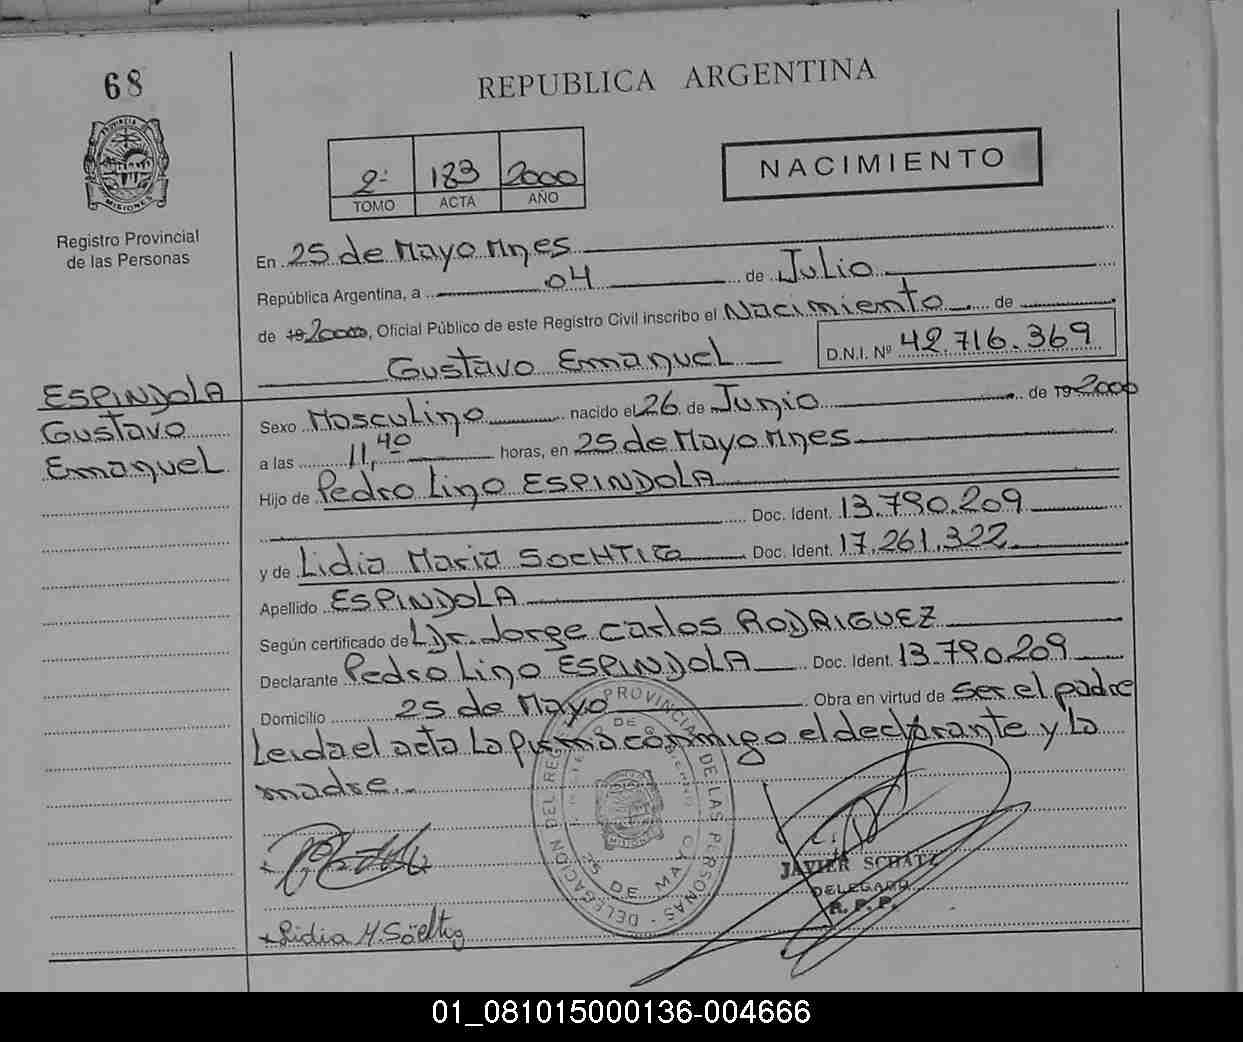 68
REPUBLICA ARGENTINA
PROVINCIA DE
MISIONES
2º 183 2000
TOMO ACTA AÑO
NACIMIENTO
Registro Provincial
de las Personas
En 25 de Mayo Mnes
República Argentina, a 04 de Julio
de 19 2000, Oficial Público de este Registro Civil inscribo el Nacimiento de
Gustavo Emanuel D.N.I. Nº 42.716.369
ESPINDOLA
Gustavo
Emanuel
Sexo Masculino nacido el 26 de Junio de 19 2000
a las 11,40 horas, en 25 de Mayo Mnes
Hijo de Pedro Lino ESPINDOLA
Doc. Ident. 13.790.209
y de Lidia Maria SOCHTIG Doc. Ident. 17.261.322
Apellido ESPINDOLA
Según certificado de L Dr. Jorge Carlos RODRIGUEZ
Declarante Pedro Lino ESPINDOLA Doc. Ident. 13.790.209
Domicilio 25 de Mayo Obra en virtud de ser el padre
Leida el acta la firma conmigo el declarante y la
madre.
DELEGACION DEL REG. PROVINCIAL DE LAS PERSONAS
25 DE MAYO
MISIONES
JAVIER SCHATZ
DELEGADO
R. P. P.
Lidia M. Söchtig
01_081015000136-004666